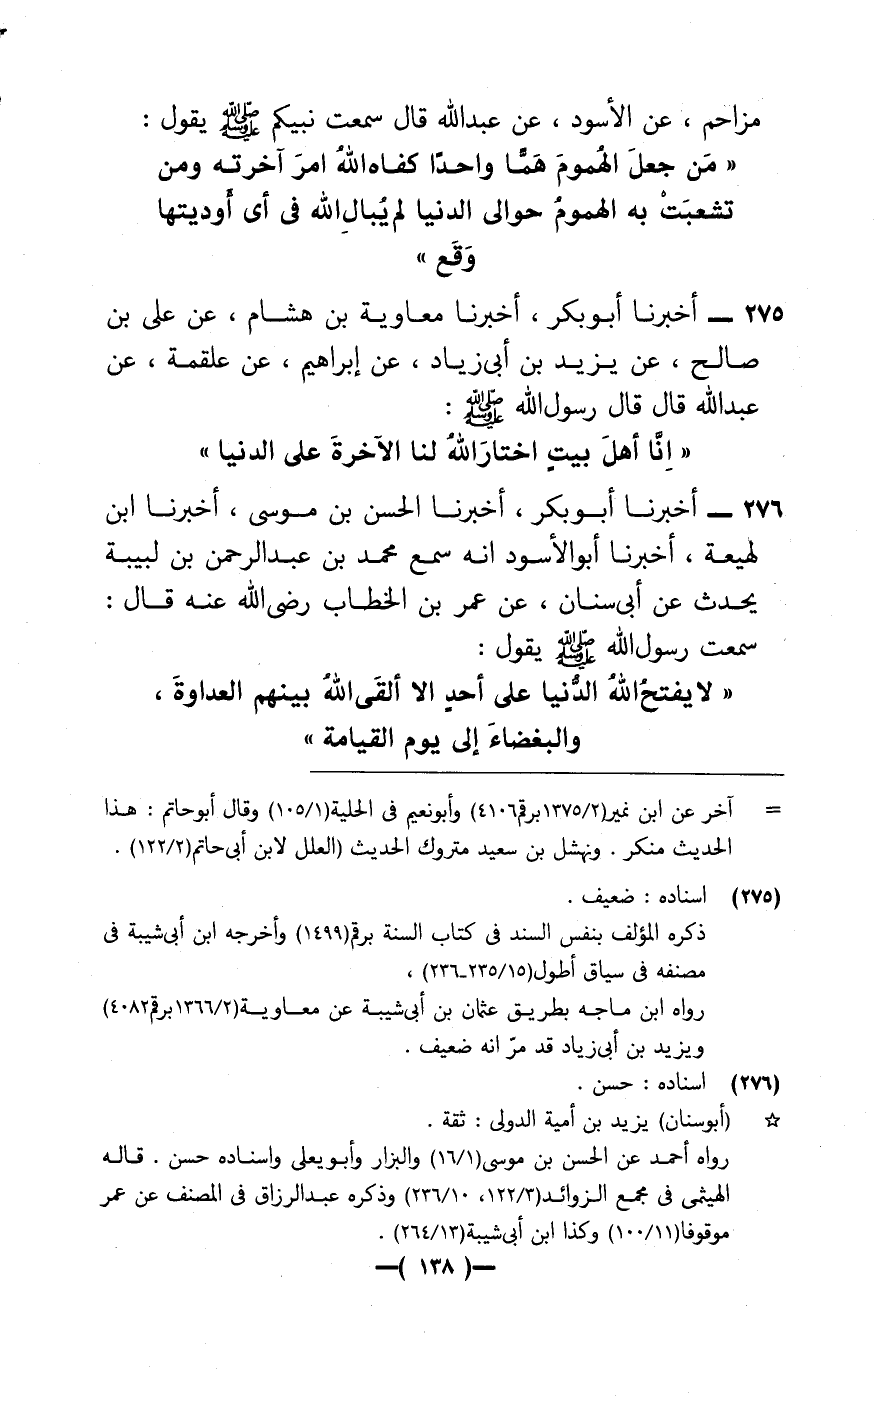 مزاحم ، عن الأسود ، عن عبدالله قال سمعت نبيكم ﷺ يقول :
« مَن جعلَ الهُمومَ هَمًّا واحدًا كفاه‌اللهُ امرَ آخرته ومن
تشعبَتْ به الهمومُ حوالى الدنيا لم‌يُبالِ‌الله فى أى أَوديتها
وَقَع »
٢٧٥ — أخبرنا أبوبكر ، أخبرنا معاوية بن هشام ، عن على بن
صالح ، عن يزيد بن أبى‌زياد ، عن إبراهيم ، عن علقمة ، عن
عبدالله قال قال رسول‌الله ﷺ :
« إنَّا أهلَ بيتٍ اختارَاللهُ لنا الآخرةَ على الدنيا »
٢٧٦ — أخبرنا أبوبكر ، أخبرنا الحسن بن موسى ، أخبرنا ابن
لهيعة ، أخبرنا أبوالأسود انه سمع محمد بن عبدالرحمن بن لبيبة
يحدث عن أبى‌سنان ، عن عمر بن الخطاب رضى‌الله عنه قال :
سمعت رسول‌الله ﷺ يقول :
« لايفتحُ‌اللهُ الدُّنيا على أحدٍ الا ألقَى‌اللهُ بينهم العداوةَ ،
والبغضاءَ إلى يوم القيامة »
= آخر عن ابن نمير(١٣٧٥/٢برقم٤١٠٦) وأبونعيم فى الحلية(١٠٥/١) وقال أبوحاتم : هذا
الحديث منكر . ونهشل بن سعيد متروك الحديث (العلل لابن أبى‌حاتم(١٢٢/٢) .
(٢٧٥) اسناده : ضعيف .
ذكره المؤلف بنفس السند فى كتاب السنة برقم(١٤٩٩) وأخرجه ابن أبى‌شيبة فى
مصنفه فى سياق أطول(٢٣٥/١٥-٢٣٦) ،
رواه ابن ماجه بطريق عثمان بن أبى‌شيبة عن معاوية(١٣٦٦/٢برقم٤٠٨٢)
ويزيد بن أبى‌زياد قد مرّ انه ضعيف .
(٢٧٦) اسناده : حسن .
☆ (أبوسنان) يزيد بن أمية الدولى : ثقة .
رواه أحمد عن الحسن بن موسى(١٦/١) والبزار وأبويعلى واسناده حسن . قاله
الهيثمى فى مجمع الزوائد(١٢٢/٣، ٢٣٦/١٠) وذكره عبدالرزاق فى المصنف عن عمر
موقوفا(١٠٠/١١) وكذا ابن أبى‌شيبة(٢٦٤/١٣) .
—( ١٣٨ )—